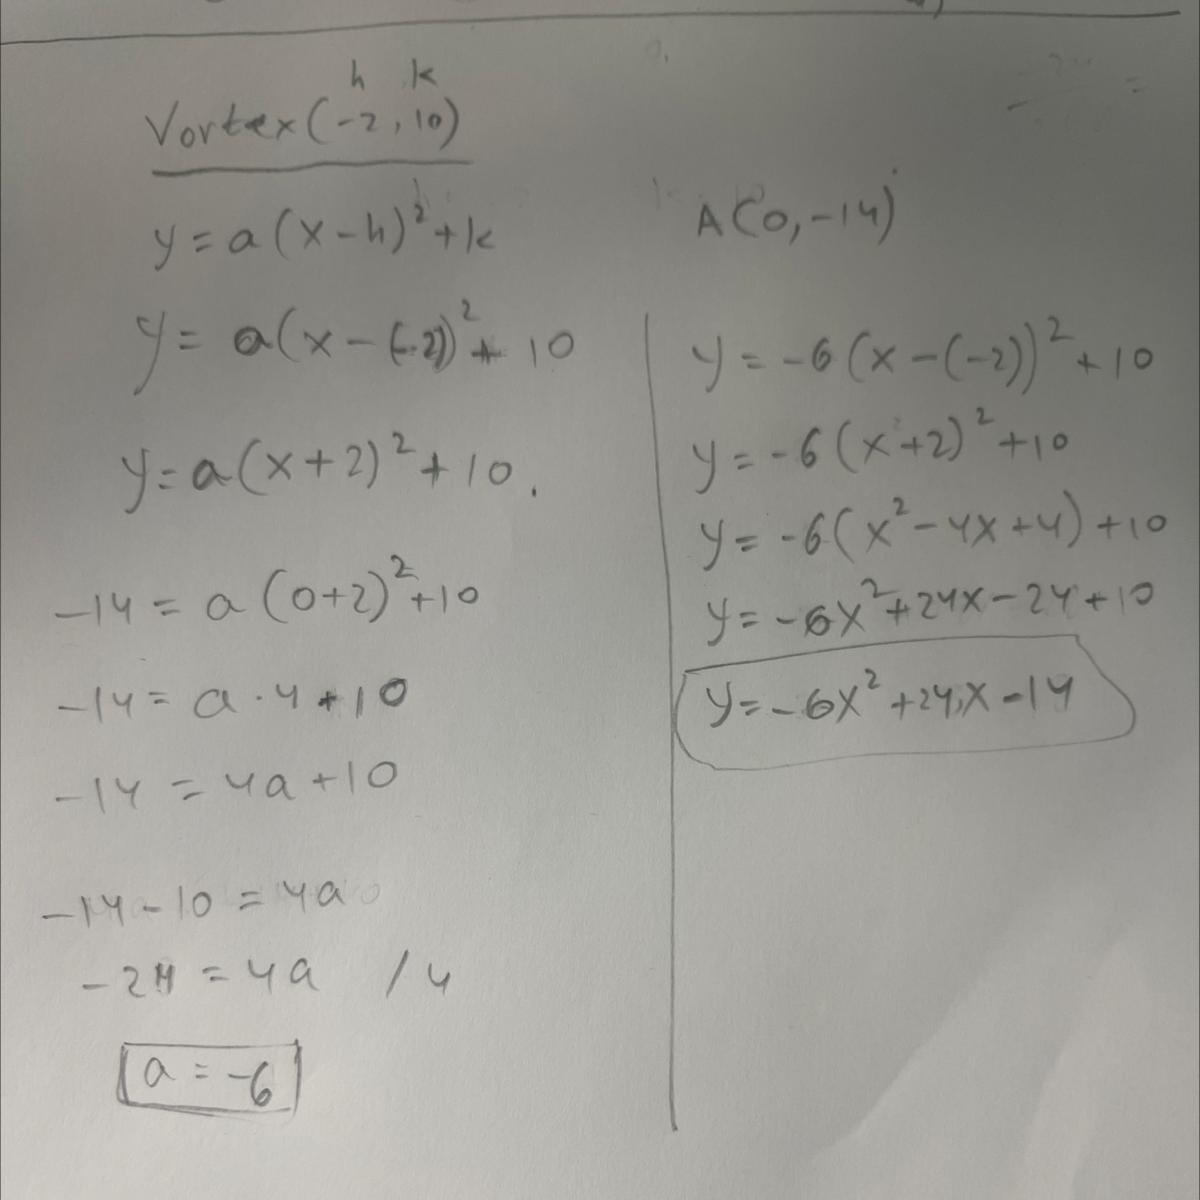 h k
Vortex(-2, 10)
y = a(x-h)² + k
y = a(x-(-2))² + 10
y = a(x+2)² + 10.
-14 = a(0+2)² + 10
-14 = a·4 + 10
-14 = 4a + 10
-14 - 10 = 4a
-24 = 4a /4
a = -6
A(0, -14)
y = -6(x-(-2))² + 10
y = -6(x+2)² + 10
y = -6(x² - 4x + 4) + 10
y = -6x² + 24x - 24 + 10
y = -6x² + 24x - 14